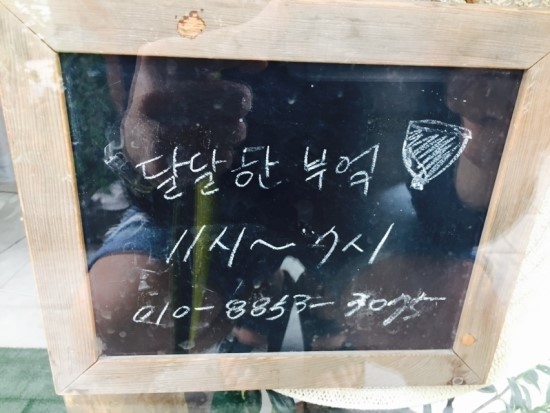 달달한 부엌
11시~ 7시
010-8853-3075